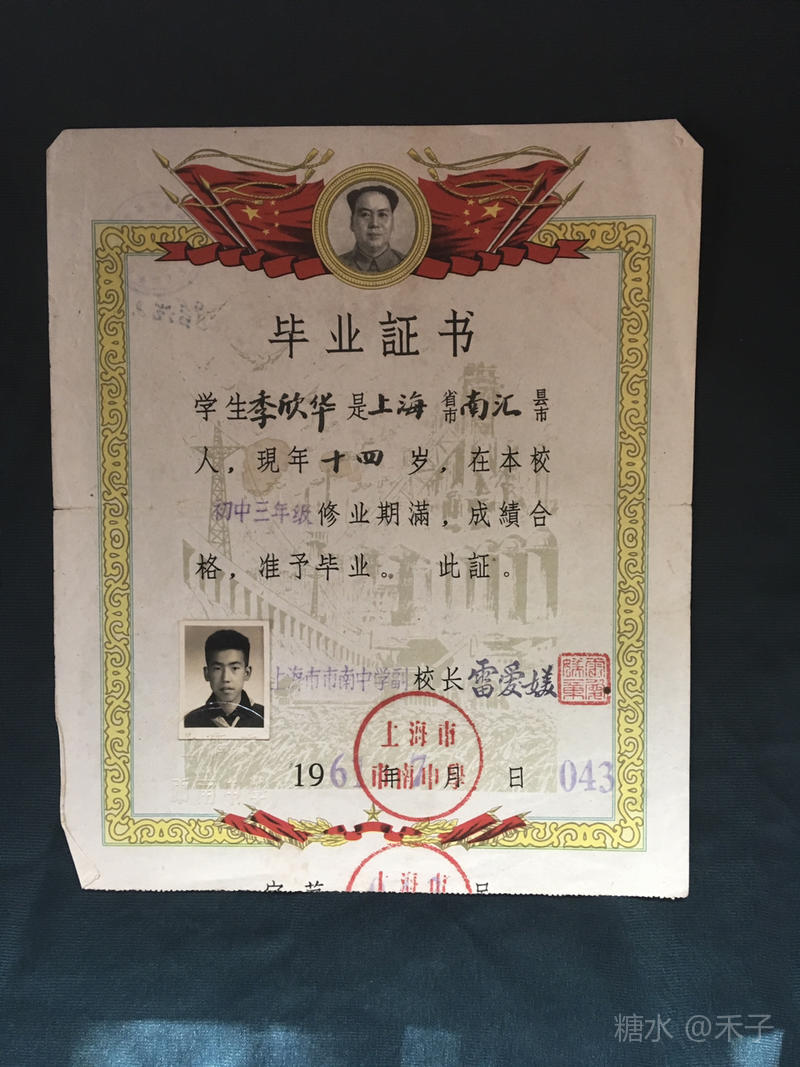 毕业証书
学生季欣华是上海省市南汇县市
人，现年十四岁，在本校
初中三年级修业期滿，成績合
格，准予毕业。 此証。
上海市市南中学副校长雷爱媄
上海市
市南中学
1961年7月 日 043
上海市
糖水 @禾子